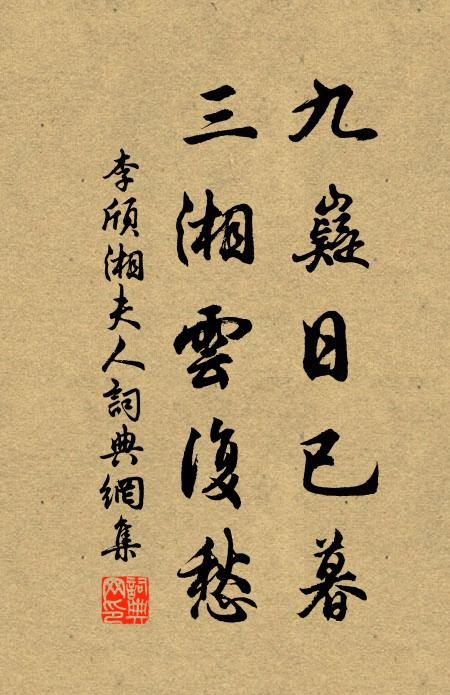 九嶷日已暮
三湘雲復愁
李頎湘夫人詞典網集
詞典網印